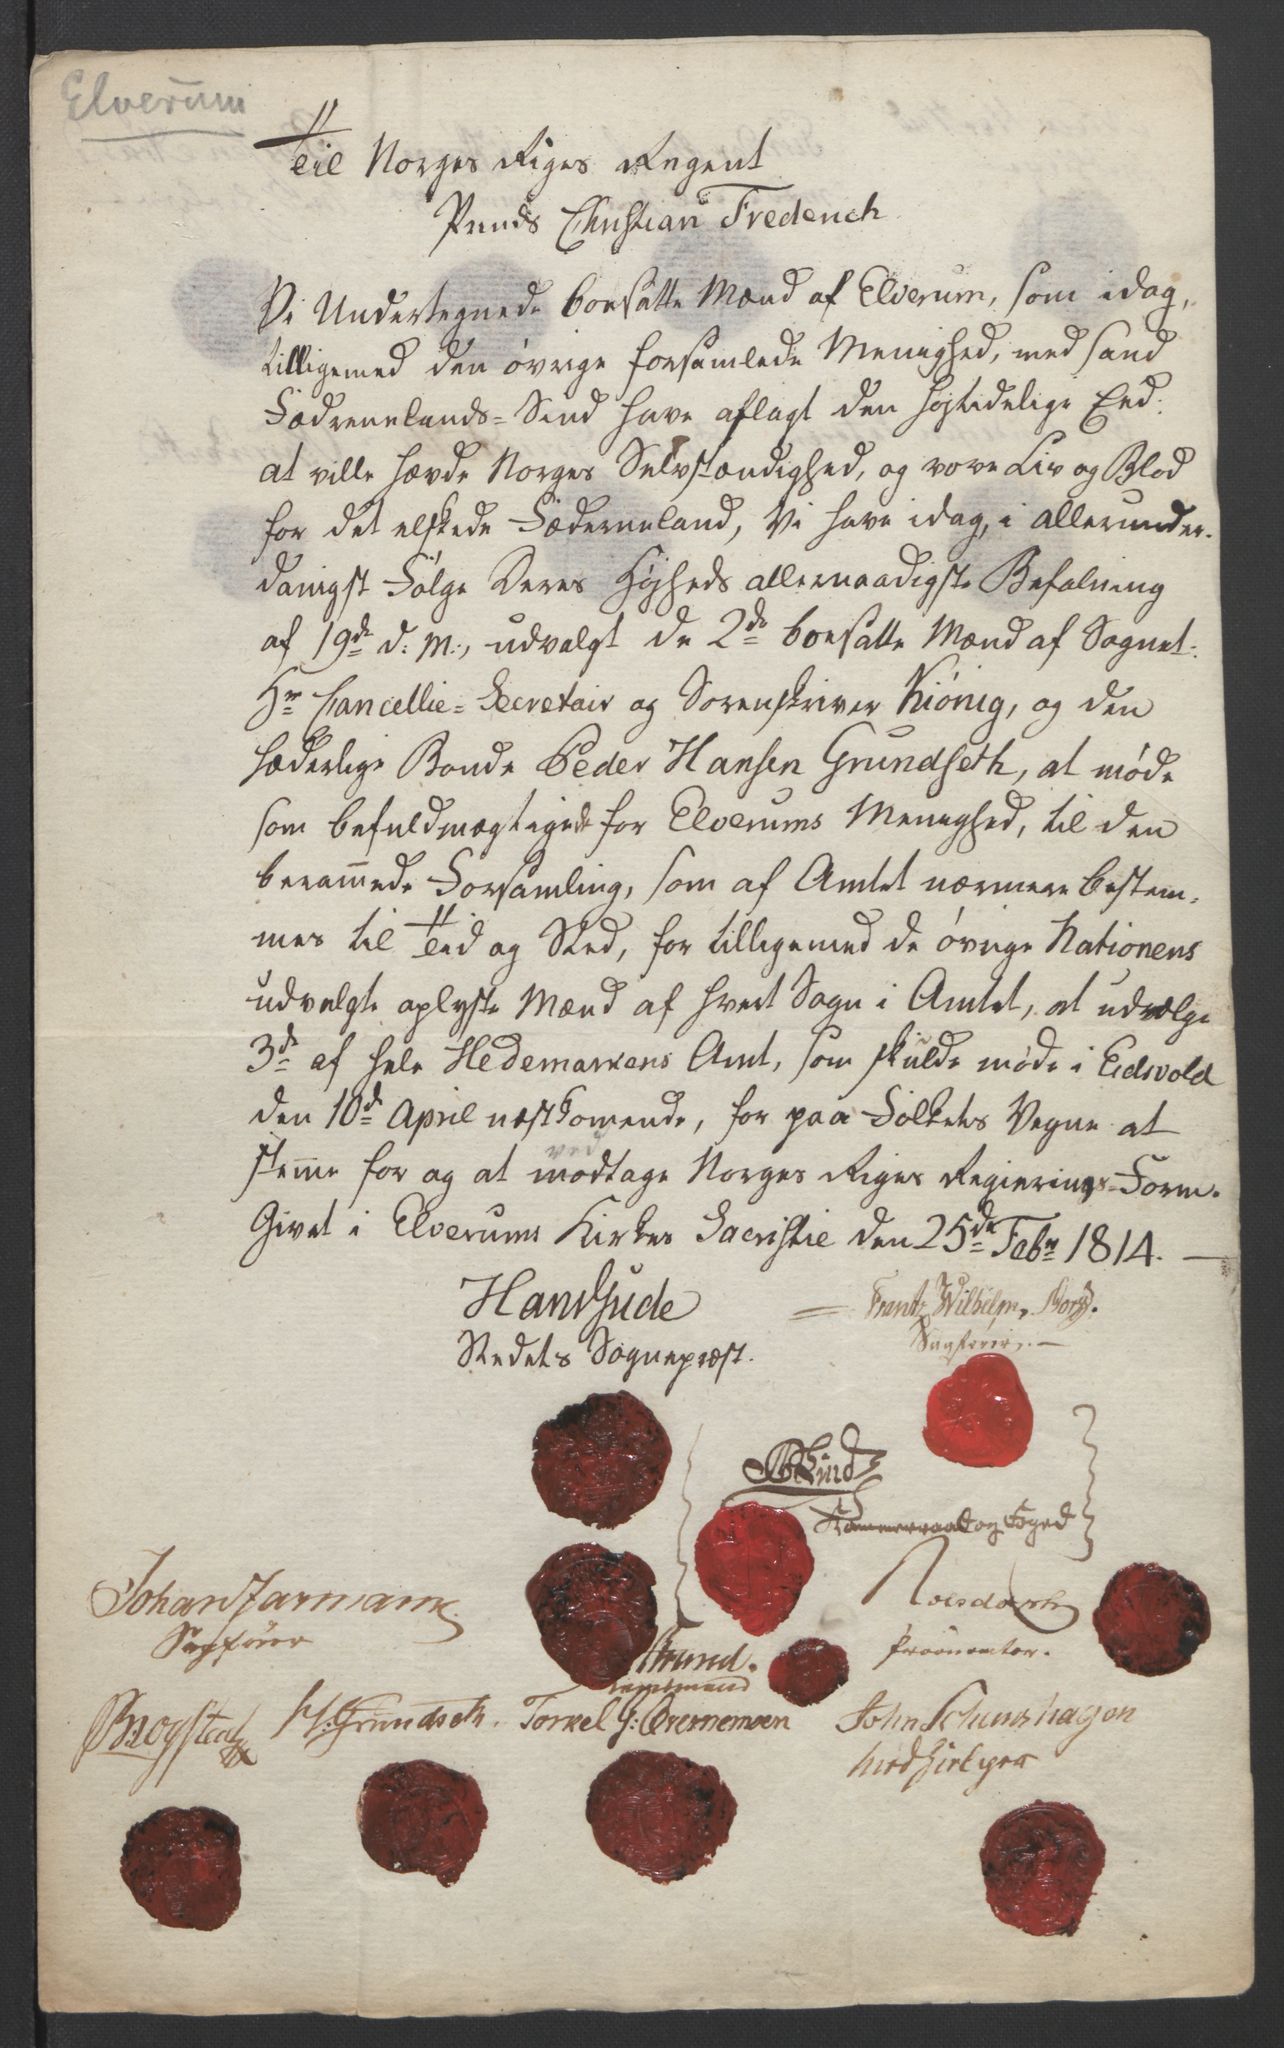 Elverum
Til Norges Riges Regent
Prinds Christian Frederich
Vi Undertegnede boesatte Mænd af Elverum, som idag,
tilligemed den øvrige forsamlede Menighed, med sand
Fædrenelands-Sind have aflagt den højtidelige Eed:
at ville hævde Norges Selvstændighed, og vove Liv og Blod
for det elskede Fæderneland, Vi have idag, i allerunder-
danigst Følge Deres Højheds allernaadigste Befalning
af 19de d: M:, udvalgt de 2de boesatte Mænd af Sognet:
Hr Cancellie-Secretair og Sorenskriver Kiønig, og den
hæderlige Bonde Peder Hansen Grundseth, at møde
som befuldmægtigede for Elverums Menighed, til den
beram̄ede Forsamling, som af Amtet nærmere bestem-
mes til Tid og Sted, for tilligemed de øvrige Nationens
udvalgte oplyste Mænd af hvert Sogn i Amtet, at udvælge
3de af hele Hedemarkens Amt, som skulde møde i Eidsvold
den 10de April næstkom̄ende, for paa Folkets Vegne at
stem̄e for og at modtage Norges Riges Regierings-Form.
ved
Givet i Elverums Kirkes Sacristie den 25de Febr 1814.
Hans Gude
Stedets Sognepræst.
Frantz Wilhelm Borg.
Sagfører.
Lund
Kammerraad og Foged
Johan Jarmann
Sagfører
Procurator.
Strand.
Lensmand
H: Grundseth.
Torkel G: Grernemoen
John Schulshagen